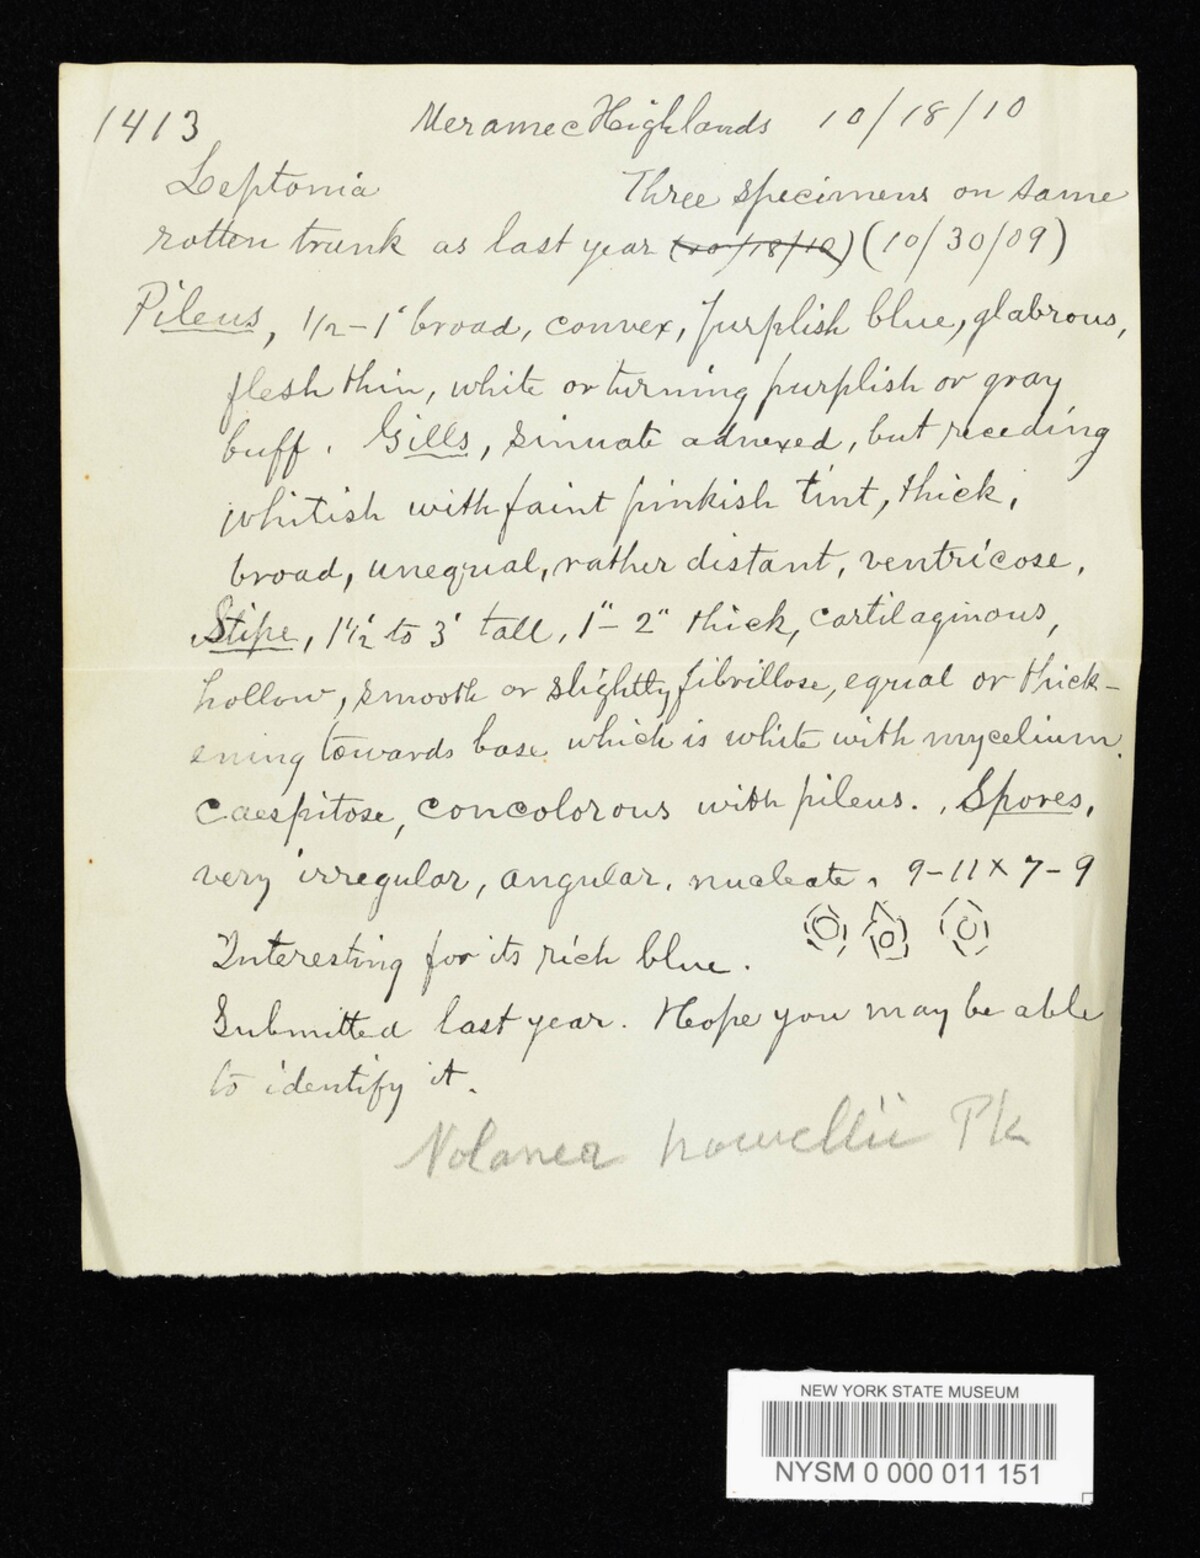 1413 Meramec Highlands 10/18/10
Leptonia Three specimens on same
rotten trunk as last year (10/18/10) (10/30/09)
Pileus, 1/2-1' broad, convex, purplish blue, glabrous,
flesh thin, white or turning purplish or gray
buff. Gills, sinuate adnexed, but receding
whitish with faint pinkish tint, thick,
broad, unequal, rather distant, ventricose.
Stipe, 1 1/2' to 3' tall, 1"-2" thick, cartilaginous,
hollow, smooth or slightly fibrillose, equal or thick-
ening towards base which is white with mycelium.
Caespitose, concolorous with pileus. Spores,
very irregular, angular, nucleate. 9-11 x 7-9
Interesting for its rich blue.
Submitted last year. Hope you may be able
to identify it.
Nolanea Pk
NEW YORK STATE MUSEUM
NYSM 0 000 011 151